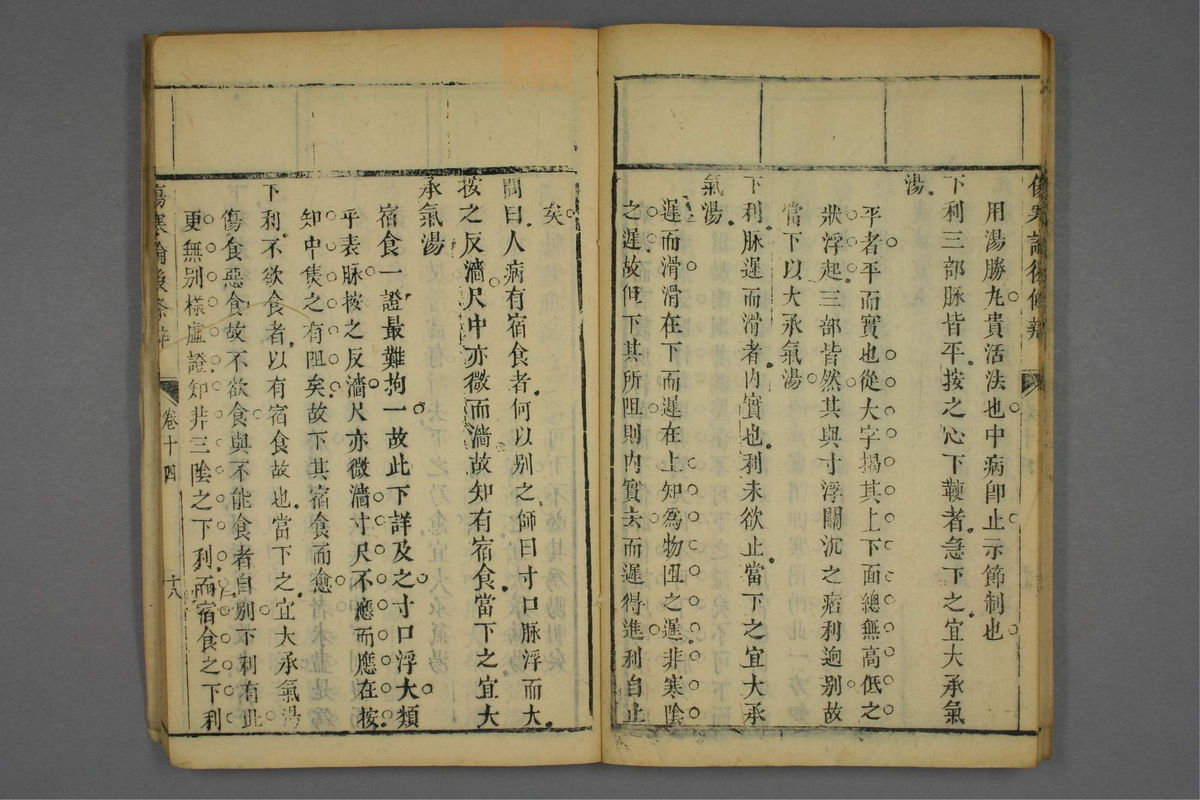 傷寒論後條辨
用湯勝九貴活法也中病卽止示節制也
下利三部脉皆平按之心下鞕者急下之宜大承氣
湯
平者平而實也從大字揭其上下面總無高低之
狀浮起三部皆然其與寸浮關沉之痞利逈别故
當下以大承氣湯
下利脉遲而滑者內實也利未欲止當下之宜大承
氣湯
遲而滑滑在下而遲在上知爲物阻之遲非寒陰
之遲故但下其所阻則內實去而遲得進利自止
矣
問曰人病有宿食者何以别之師曰寸口脉浮而大
按之反濇尺中亦微而濇故知有宿食當下之宜大
承氣湯
宿食一證最難拘一故此下詳及之寸口浮大類
乎表脉按之反濇尺亦微濇寸尺不應而應在按
知中焦之有阻矣故下其宿食而愈
下利不欲食者以有宿食故也當下之宜大承氣湯
傷食惡食故不欲食與不能食者自别下利有此
更無别樣虛證知非三陰之下利而宿食之下利
傷寒論後條辨
卷十四
十八